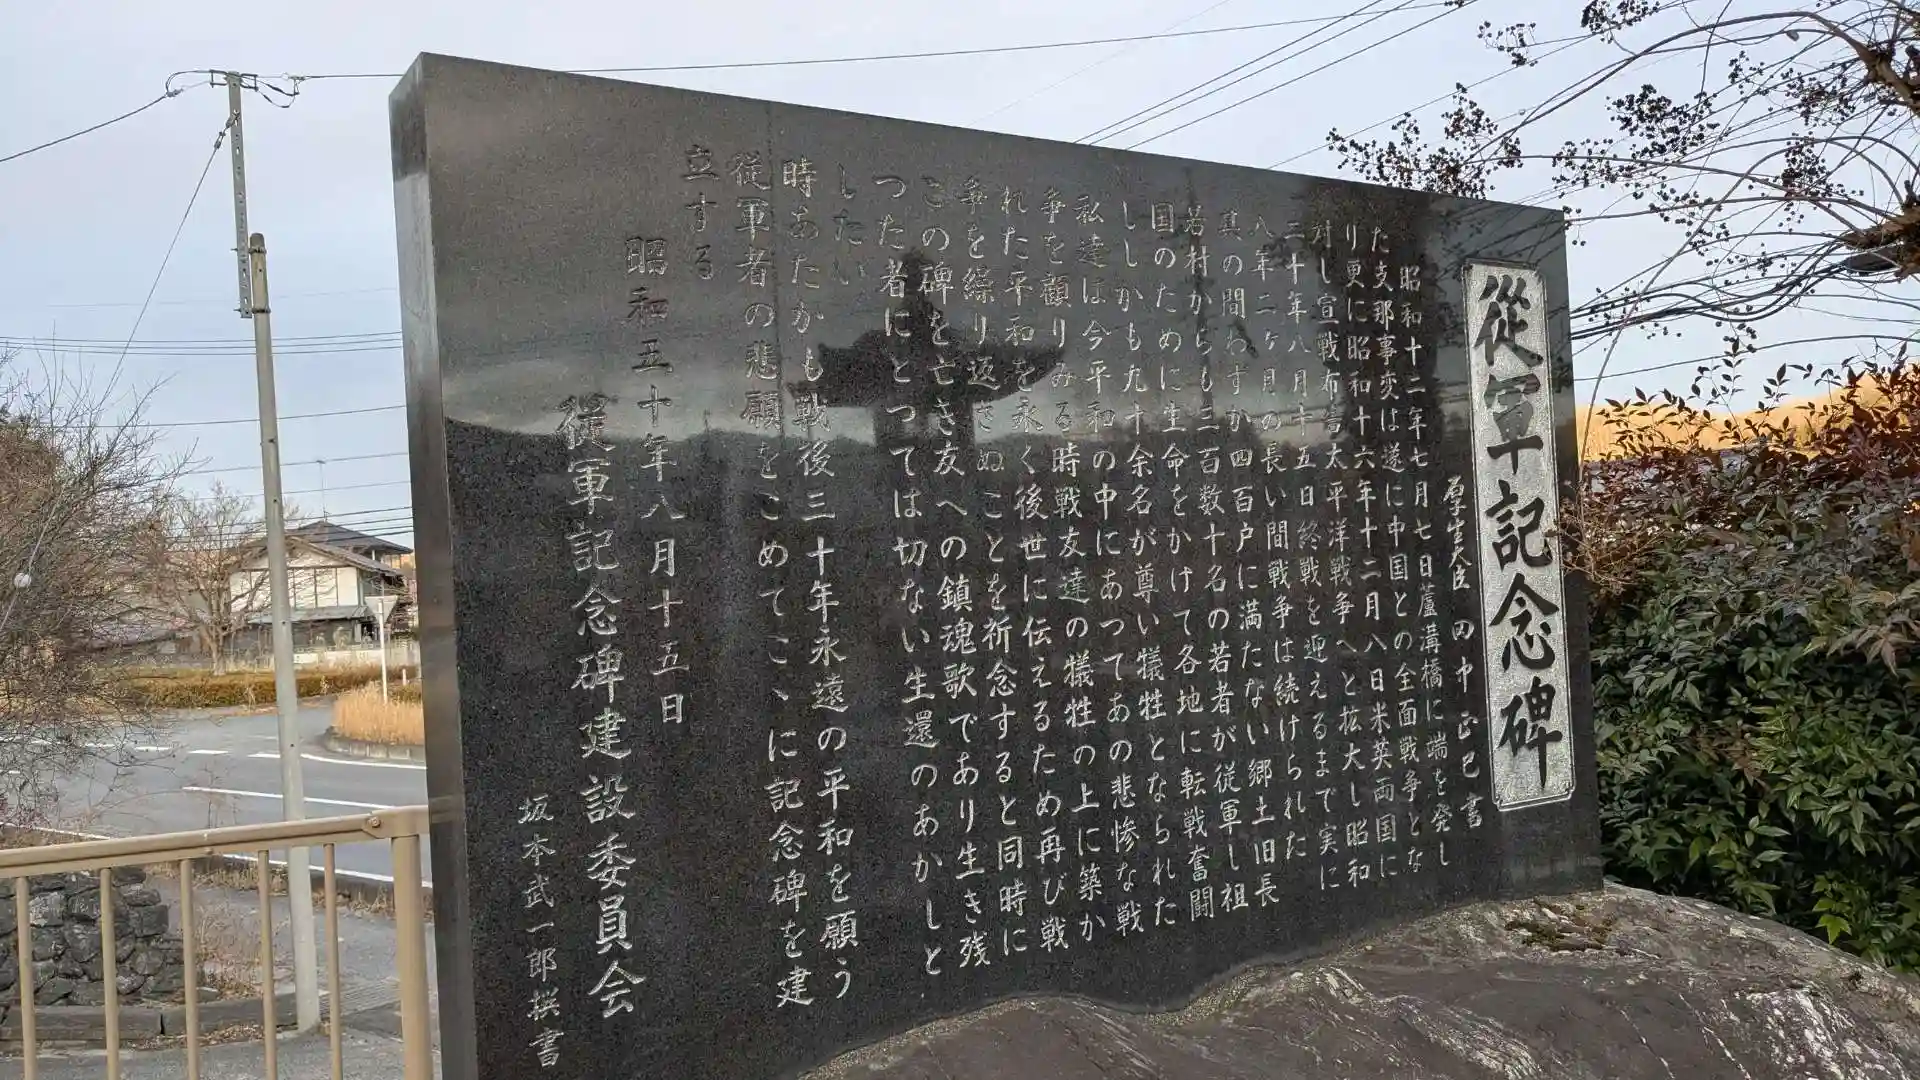 從軍記念碑
厚生大臣 田中正巳書
昭和十二年七月七日蘆溝橋に端を発し
た支那事変は遂に中国との全面戦争とな
り更に昭和十六年十二月八日米英両国に
対し宣戦布告太平洋戦争へと拡大し昭和
二十年八月十五日終戦を迎えるまで実に
八年二ヶ月の長い間戦争は続けられた
其の間わずか四百戸に満たない郷土旧長
若村からも三百数十名の若者が従軍し祖
国のために生命をかけて各地に転戦奮闘
ししかも九十余名が尊い犠牲となられた
私達は今平和の中にあつてあの悲惨な戦
争を顧りみる時戦友達の犠牲の上に築か
れた平和を永く後世に伝えるため再び戦
争を繰り返さぬことを祈念すると同時に
この碑を亡き友への鎮魂歌であり生き残
つた者にとつては切ない生還のあかしと
したい
時あたかも戦後三十年永遠の平和を願う
従軍者の悲願をこめてこゝに記念碑を建
立する
昭和五十年八月十五日
從軍記念碑建設委員会
坂本武一郎撰書